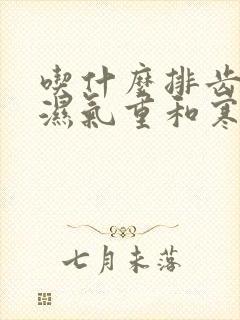 喫什麼排齿
濕氣重和寒
七月未落